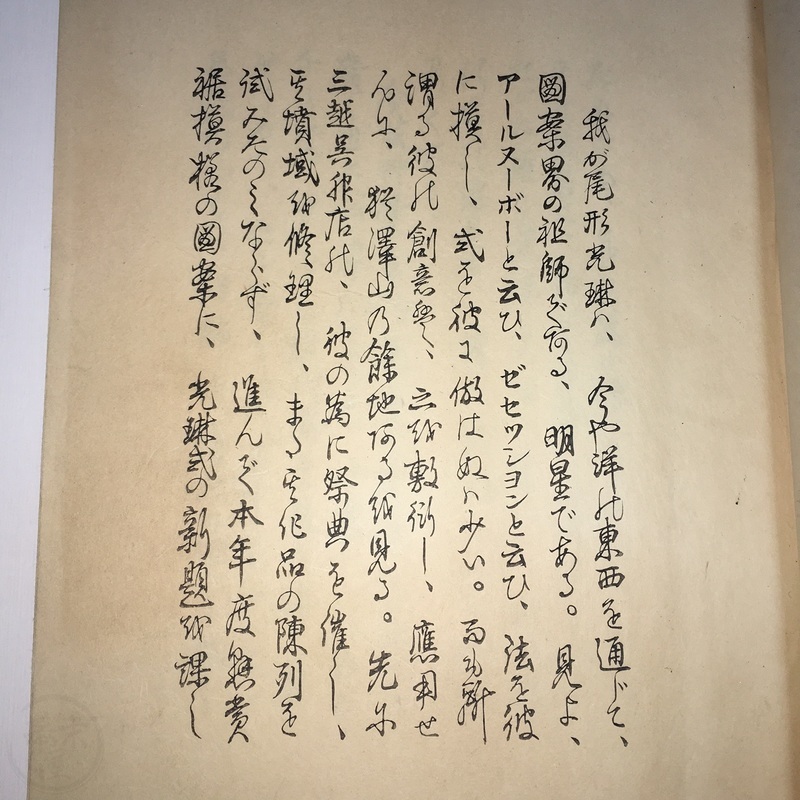 我が尾形光琳ハ、今や洋の東西を通じて、
圖案界の祖師である、明星である。見よ、
アールヌーボーと云ひ、ゼセッションと云ひ、法を彼
に摸し、式を彼に倣はぬハない。而も斯
謂る彼の創意を、云を敷衍し、應用せ
んに、猶澤山の餘地あるを見る。先に
三越呉服店の、彼の爲に祭典を催し、
其墳域を修理し、また其作品の陳列を
試みたのみならず、進んで本年度懸賞
裾摸様の圖案に、光琳式の新題を課し